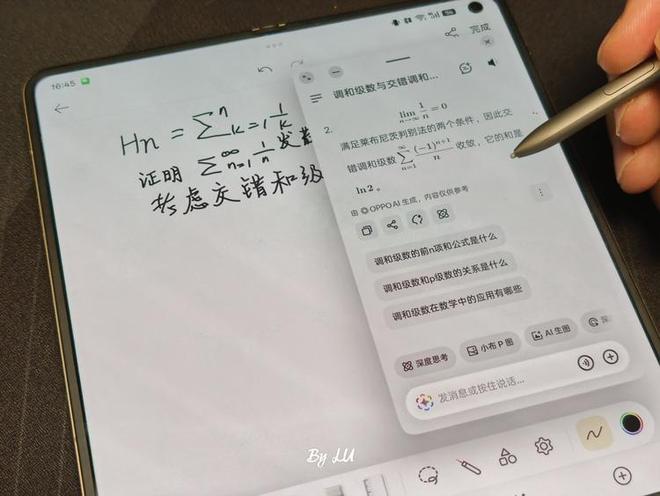 16:45
完成
Hn = ∑ⁿk=1 1/k
证明 ∑∞n=1 1/n 发散
考虑交错和级
调和级数与交错调和...
lim n→∞ 1/n = 0
2.
满足莱布尼茨判别法的两个条件，因此交
错调和级数 ∑∞n=1 (-1)ⁿ⁺¹/n 收敛，它的和是
ln 2。
由 OPPO AI 生成，内容仅供参考
调和级数的前n项和公式是什么
调和级数和p级数的关系是什么
调和级数在数学中的应用有哪些
深度思考
小布 P 图
AI 生图
深
发消息或按住说话...
By LU